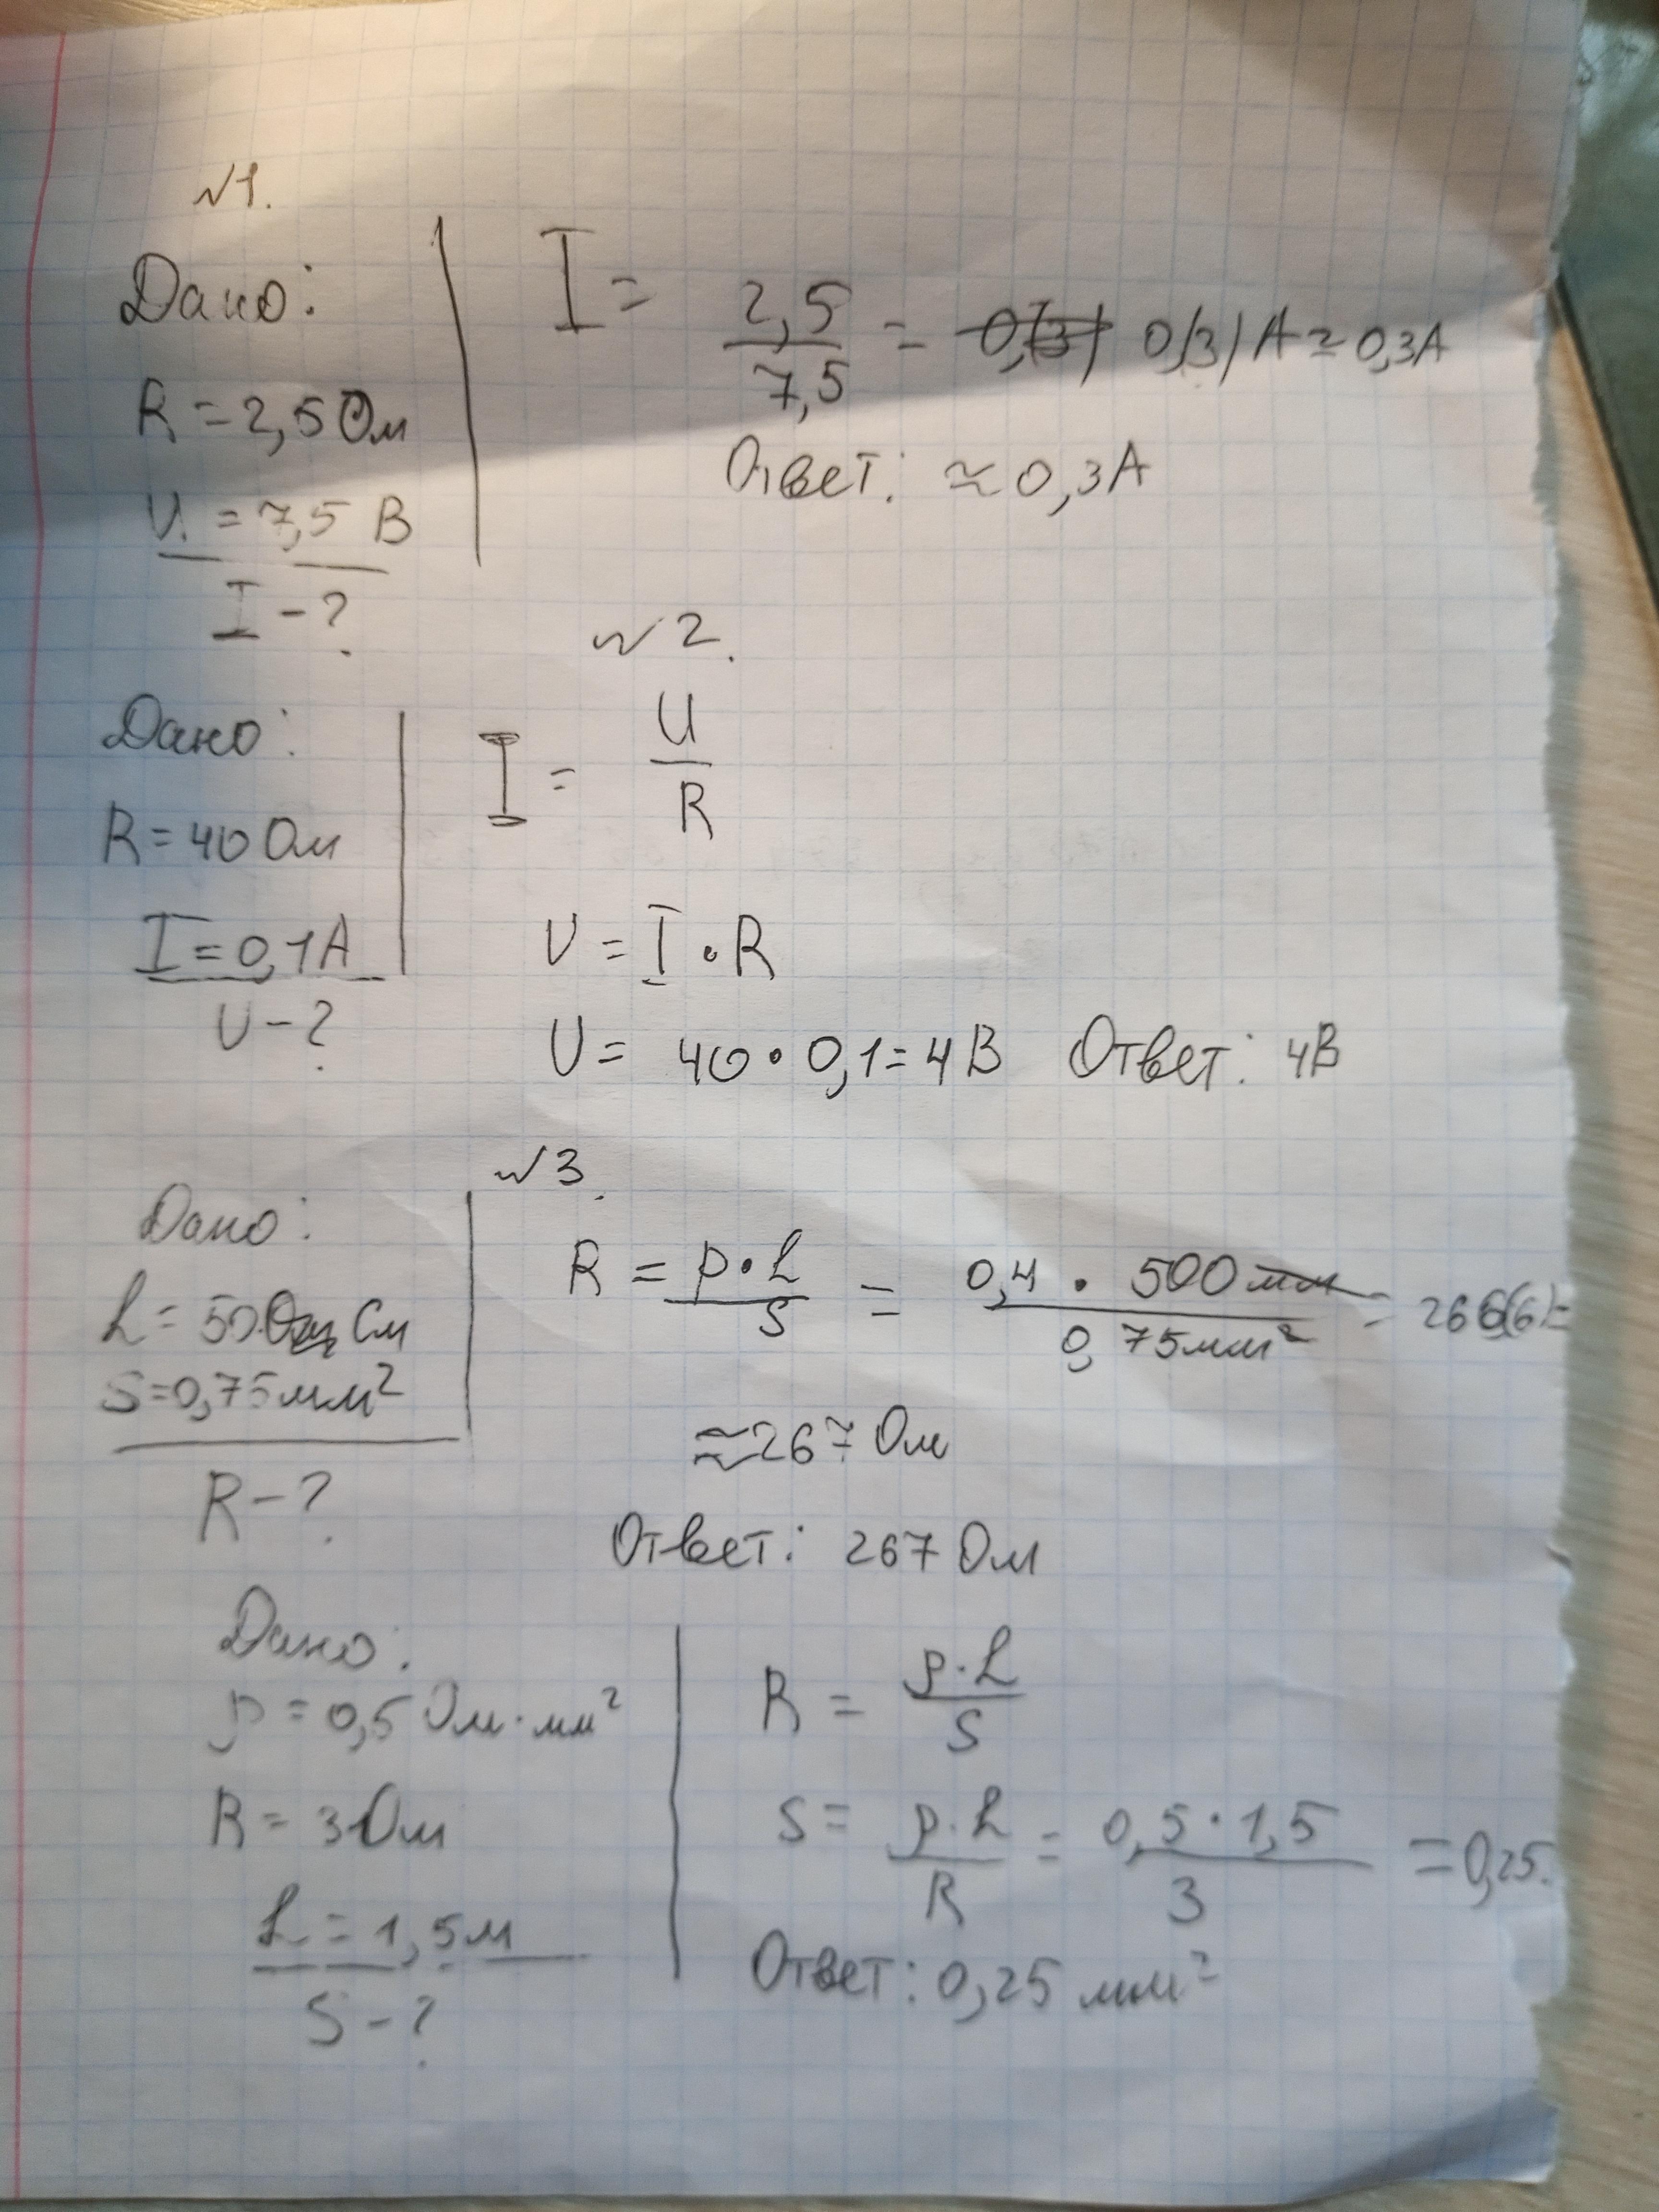 №1.
Дано:
R = 2,5 Ом
U = 7,5 В
I - ?
I = 2,5 / 7,5 = 0,(3) 0,(3) А ≈ 0,3А
Ответ: ≈ 0,3А
№2.
Дано:
R = 40 Ом
I = 0,1А
U - ?
I = U / R
U = I • R
U = 40 • 0,1 = 4В Ответ: 4В
№3.
Дано:
L = 500 см
S = 0,75мм²
R - ?
R = p • L / S = 0,4 • 500 мм / 0,75мм² = 266(6) =
≈ 267 Ом
Ответ: 267 Ом
Дано:
p = 0,5 Ом · мм²
R = 3 Ом
L = 1,5м
S - ?
R = p · L / S
S = p · L / R = 0,5 · 1,5 / 3 = 0,25.
Ответ: 0,25 мм²